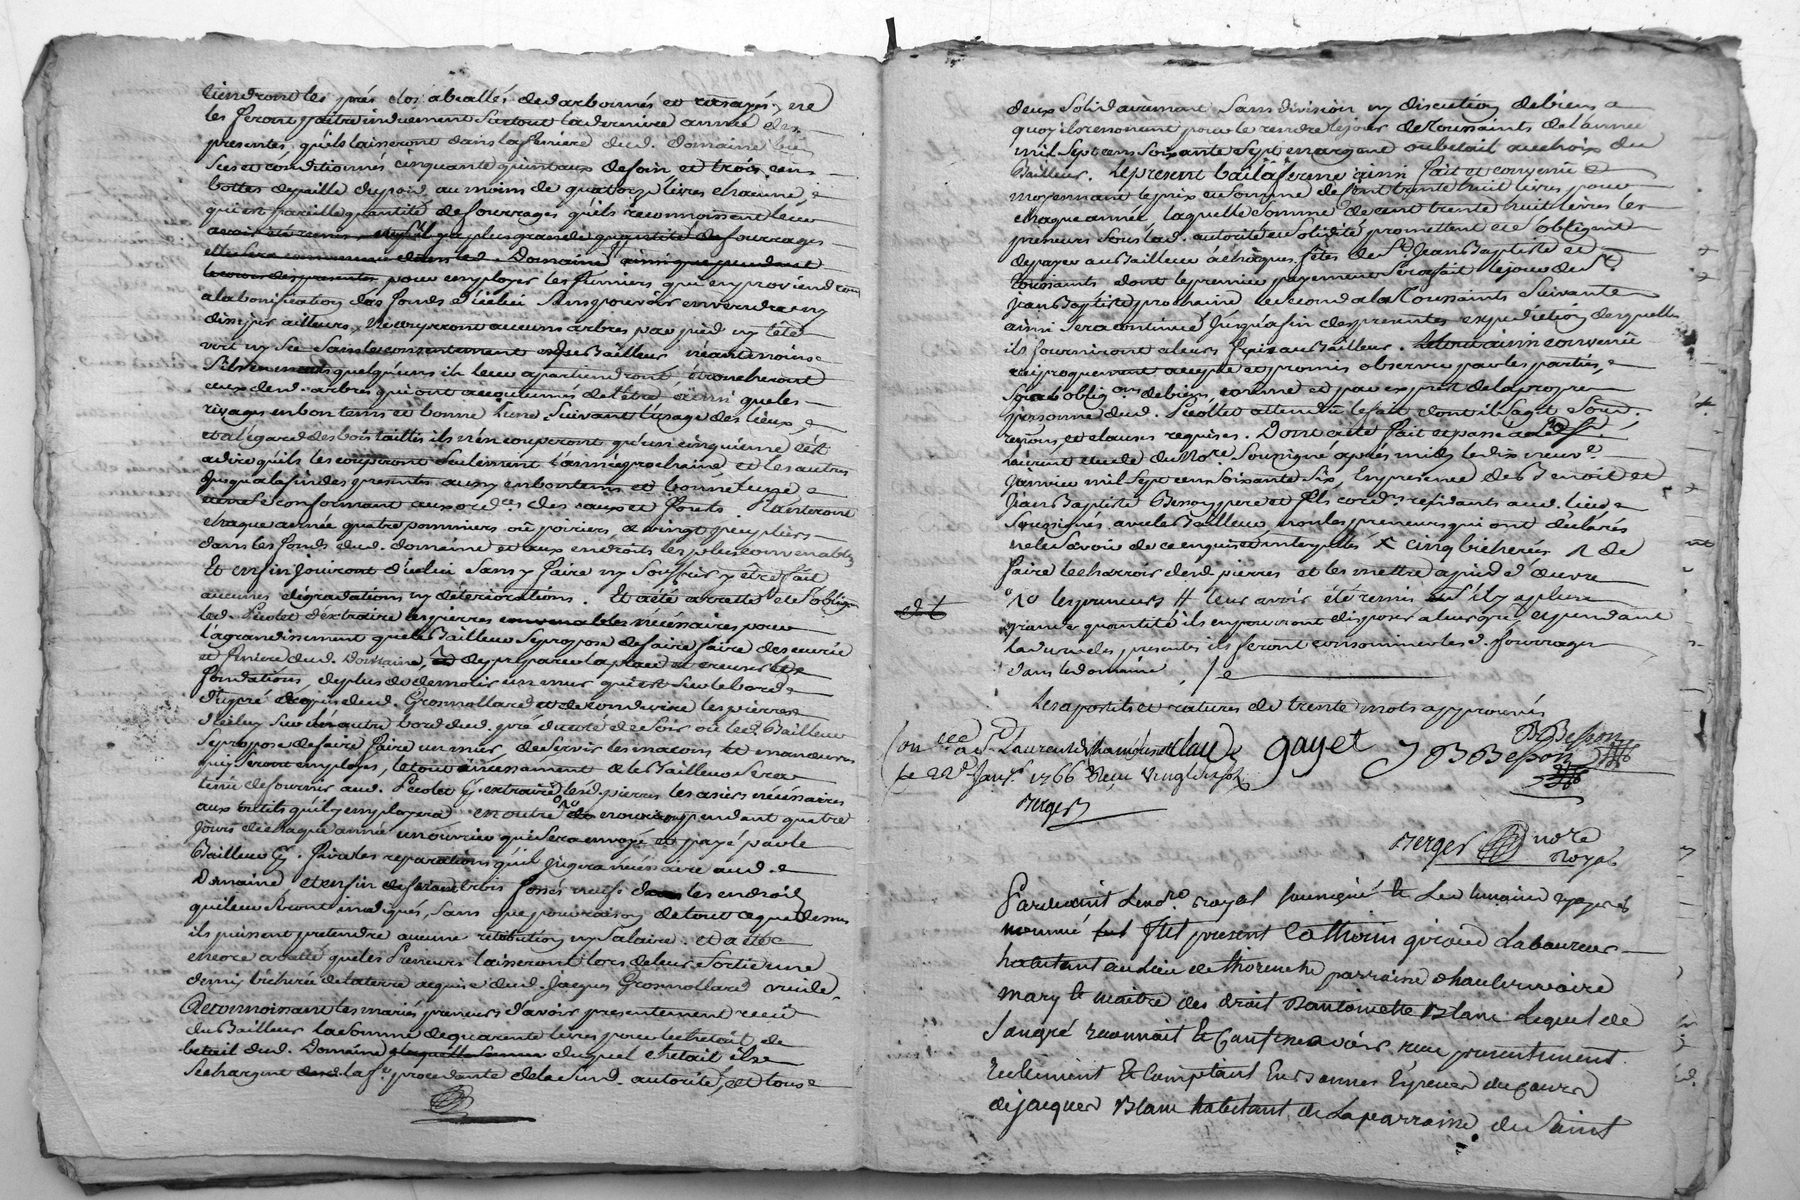 tiendront les prés clos abeallés dedarbonnés et rasayés, ne
les feront paitre induement surtout la derniere année des
presentes, qu'ils laisseront dans la feniere dud. domaine bien
secs et conditionnés cinquante quintaux de foin et trois cens
bottes de paille du poid au moins de quatorze livres chacune,
qui est pareille quantité de fourrages qu'ils reconnoissent leur
avoir été remis, plus grande quantité de fourrages
Domaine ainsi que pendant
le cours des presentes pour employer les fumiers qui en proviendront
a la bonification des fonds d'icelui sans pouvoir en vendre ny
divertir ailleurs, Ne couperont aucuns arbres par pied ny tête
vert ny sec sans le consentement du Bailleur néantmoins
quelqu'uns ils leur apartiendront, étroncheront
ceux desd. arbres qui ont accoutumés de l'être, ainsi que les
rivages en bon tems et bonne lune suivant l'usage des lieux,
et a l'égard des bois taillis ils n'en couperont qu'un cinquieme c'est
a dire qu'ils les couperont seulement l'année prochaine, et les autres
jusqu'a la fin des presentes aussy en bon tems et bonne lune
se conformant aux ord.ces des eaux et forêts. Planteront
chaque année quatre pommiers ou poiriers, et vingt peupliers
dans les fonds dud. domaine et aux endroits les plus convenables
Et enfin jouiront d'icelui sans y faire ny souffrir y être fait
aucunes dégradations ny détériorations. Et a été arretté et s'obligent
led. Pécolet d'extraire les pierres nécéssaires pour
l'agrandissement que le Bailleur se propose de faire faire des écurie
et feniere dud. Domaine, de préparer la place et creuser les
fondations, de plus de demolir un mur qui est sur le bord
d'un pré acquis dud. Grosmollard et de conduire les pierres
d'icelui sur un autre bord dud. pré du coté de soir ou led. Bailleur
se propose de faire faire un mur, de servir les macons et manœuvres
qui seront employés, le tout incéssament et le Bailleur sera
tenu de fournir aud. Pécolet p.r extraire lesd. pierres les aciers nécéssaires
aux outils qu'il y employera en outre nourrir pendant quatre
jours de chaque année un ouvrier qui sera envoyé et payé par le
Bailleur p.r faire les reparations qu'il jugera nécéssaire aud.
Domaine et enfin de faire trois fossés neufs dans les endroits
qui leur seront indiqués, sans que pour raison de tout ce que dessus
ils puissent pretendre aucune rétribution ny salaire. Et a été
encore arretté que les Preneurs laisseront lors de leur sortie une
demy bicherée de la terre acquise dud. Jacques Grosmollard vuide.
Reconnoissant les mariés preneurs d'avoir presentement receu
du Bailleur la somme de quarente livres pour le chetail de
betail dud. Domaine duquel chetail ils se
sechargent la f.e procedante de la susd. autorité, et tous
deux solidairement sans division ny discution de biens a
quoy ils renoncent pour le rendre le jour de Toussaints de l'année
mil sept cens soixante sept en argent ou betail au choix du
Bailleur. Le present bail a ferme ainsi fait et convenu
moyennant le prix et somme de cent trente huit livres pour
chaque année, laquelle somme de cent trente huit livres les
preneurs sous lad. autorité et solidité promettent et s'obligent
de payer au Bailleur a chaques fêtes de S.t Jean Baptiste et
Toussaints dont le premier payement sera fait le jour de S.t
Jean Baptiste prochaine le second a la Toussaints suivante
ainsi sera continué jusqu'a fin des presentes expédition desquelles
ils fourniront a leurs fraix au Bailleur. Le tout ainsi convenu
reciproquement accepté et promis observer par les parties,
sous oblig.ons de biens, comme et par exprét de la propre
personne dud. Pécollet attendu le fait dont il s'agit soum.
renons, et clauses requises. Dont acte fait et passé a S.t
Laurent etude du No.re soussigné après midy le dix neuv.e
Janvier mil sept cens soixante six, En presence de S.rs Benoit et
Jean Baptiste Besson pere et fils cord.rs residants aud. lieu
soussignés avec le Bailleur, non les preneurs qui ont déclarés
ne le savoir de ce enquis et interpellés cinq bicherées de
faire le charroir desd. pierres et les mettre a pied d'œuvre
les preneurs leur avoir été remis s'il y a plus
grande quantité ils en pourront disposer a leur gré, et pendant
la durée des presentes ils feront consommer lesd. fourrages
dans le domaine
Les apostils et ratures de trente mots approuvés
Con.lé a S.t Laurent de Chamousset
le 22.e Janv.r 1766 Reçu
Berger
gayet
J B Besson
B Besson
Berger no.re
Royal
Pardevant le no.re royal soussigné et les temoins apres
nommé fut present Cathorin giraud Laboureur
habitant au lieu de thorenche parroisse d'hauterivoire
mary et maitre des droit d'antoinette Blanc Lequel de
son gré reconnoit et confesse avoir reçu presentement
reellement et comptant en bonnes Especes du cours
de jacques Blanc habitant de La parroisse de Saint